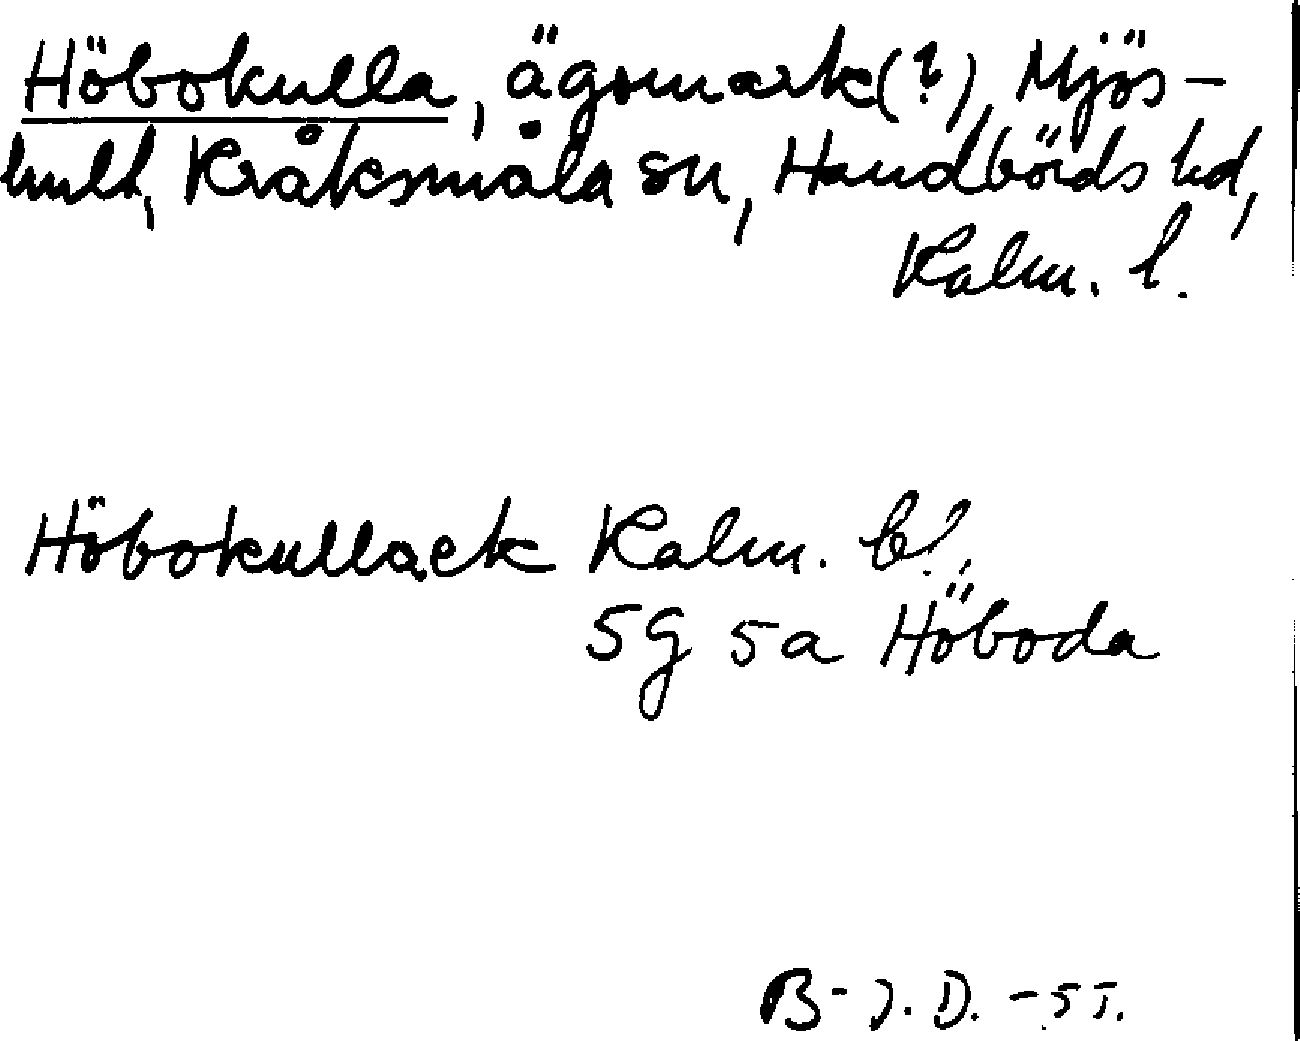 Höbokulla, ägomark(?), Mjös-
hult, Kråksmåla sn, Handbörds hd,
Kalm. l.
Höbokullack Kalm. bl.,
5g 5a Höboda
B-J.D. -55.